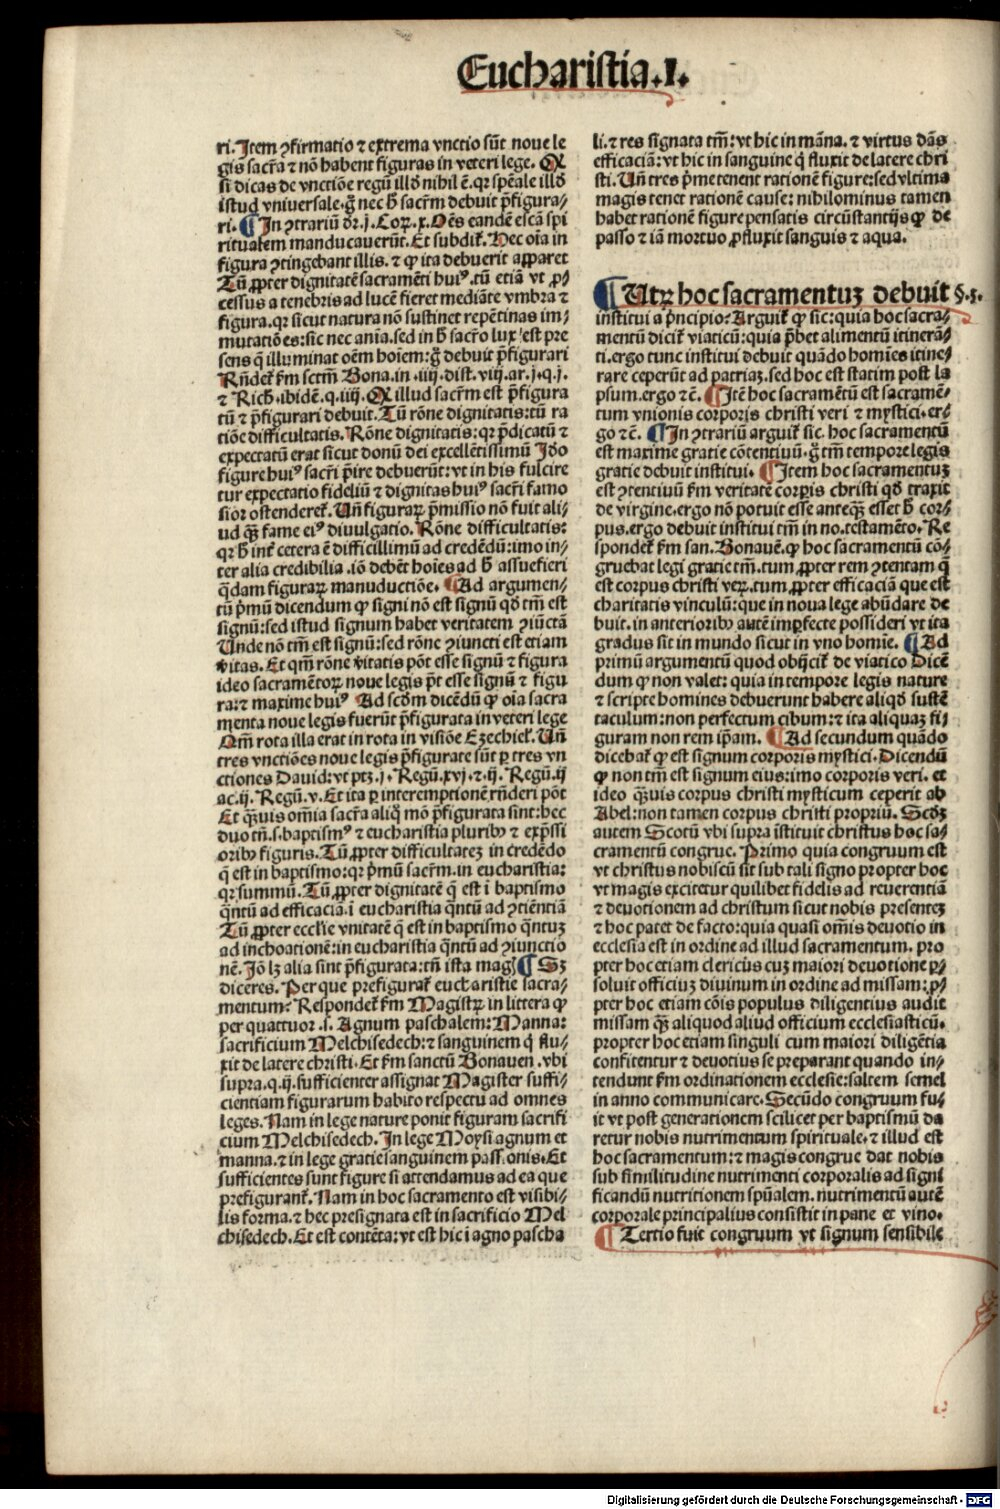 Eucharistia.I.
ri. Itē ꝯfirmatio ⁊ extrema vnctio sūt noue le
gis sacr̄a ⁊ nō habent figuras in veteri lege. Q
si dicas de vnctiōe regū illđ nihil ē. qꝛ sp̄eale illđ
istud vniuersale. g̊ nec ħ sacr̄m debuit p̄figura/
ri. ¶ In ꝯtrariū dꝛ. j. Coꝝ. x. Oēs eandē escā spi
ritualem manducauerūt. Et subdit̄. Hec oīa in
figura ꝯtingebant illis. ⁊ ꝙ ita debuerit apparet
Tū ꝓpter dignitatē sacramēti huiꝰ. tū etiā vt ꝓ/
cessus a tenebris ad lucē fieret mediāte vmbra ⁊
figura. qꝛ sicut natura nō sustinet repētinas im/
mutatiōes: sic nec aīa. sed in ħ sacr̄o lux est pre
sens q̄ illuminat oēm hoīem: g̊ debuit p̄figurari
Rn̄det̄ ẜm sctm̄ Bona. in .iiij. dist. viij. ar. j. q. j.
⁊ Rich. ibidē. q. iiij. Q illud sacr̄m est p̄figura
tū ⁊ p̄figurari debuit. Tū rōne dignitatis: tū ra
tiōe difficultatis. Rōne dignitatis: qꝛ p̄dicatū ⁊
expectatū erat sicut donū dei excellētissimū Ido
figure huiꝰ sacr̄i p̄ire debuerūt: vt in his fulcire
tur expectatio fideliū ⁊ dignitas huiꝰ sacr̄i famo
sior ostenderet̄. Un̄ figuraꝝ p̄missio nō fuit ali/
ud qꝫ̄ fame eiꝰ diuulgatio. Rōne difficultatis:
qꝛ ħ int̄ cetera ē difficillimū ad credēdū: imo in/
ter alia credibilia. iō debēt hoīes ad ħ assuefieri
q̄dam figuraꝝ manuductiōe. ¶ Ad argumen/
tū p̄mū dicendum ꝙ signi nō est signū qđ tm̄ est
signū: sed istud signum habet veritatem ꝯiūctā
Unde nōn tm̄ est signū: sed rōne ꝯiuncti est etiam
v̄itas. Et qm̄ rōne v̄itatis pōt esse signū ⁊ figura
ideo sacramētoꝝ noue legis p̄t esse signū ⁊ figu
ra: ⁊ maxime huiꝰ Ad scđm dicēdū ꝙ oīa sacra
menta noue legis fuerūt p̄figurata in veteri lege
Qm̄ rota illa erat in rota in visiōe Ezechiel̄. Un̄
tres vnctiōes noue legis p̄figurate sūt ꝑ tres vn
ctiones Dauid: vt ptꝫ. j. Regū. xvj. ⁊. ij. Regū. ij
ac. ij. Regū. v. Et ita ꝑ interemptionē rn̄deri pōt
Et qꝫ̄uis om̄ia sacr̄a aliq̊ mō p̄figurata sint: hec
duo tn̄. s. baptismꝰ ⁊ eucharistia pluribꝰ ⁊ exp̄ssi
oribꝰ figuris. Tū ꝓpter difficultateꝫ in credēdo
q̄ est in baptismo: qꝛ p̄mū sacr̄m. in eucharistia:
qꝛ summū. Tū ꝓpter dignitatē q̄ est ī baptismo
q̄ntū ad efficaciā. ī eucharistia q̄ntū ad ꝯtinētiā
Tū ꝓpter eccl̄ie vnitatē q̄ est in baptismo q̄ntuꝫ
ad inchoationē: in eucharistia q̄ntū ad ꝯiunctio
nē. Iō lꝫ alia sint p̄figurata: tn̄ ista mag̃ ¶ Sꝫ
diceres. Per que prefigurat̄ eucharistie sacra/
mentum? Respondet̄ ẜm Magistꝝ in littera ꝙ
per quattuor .s. Agnum paschalem: Manna:
sacrificium Melchisedech: ⁊ sanguinem q̄ flu/
xit de latere christi. Et ẜm sanctū Bonauen. vbi
supra. q. ij. sufficienter assignat Magister suffi/
cientiam figurarum habito respectu ad omnes
leges. Nam in lege nature ponit figuram sacrifi
cium Melchisedech. In lege Moysi agnum et
manna. ⁊ in lege gratie sanguinem passionis. Et
sufficientes sunt figure si attendamus ad ea que
prefigurant̄. Nam in hoc sacramento est visibi/
lis forma. ⁊ hec presignata est in sacrificio Mel
chisedech. Et est contēta: vt est hic ī agno pascha
li. ⁊ res signata tm̄: vt hic in māna. ⁊ virtus dās
efficaciā: vt hic in sanguine q̄ fluxit de latere chri
sti. Un̄ tres p̄me tenent rationē figure: sed vltima
magis tenet rationē cause: nihilominus tamen
habet rationē figure pensatis circūstantijs ꝙ de
passo ⁊ iā mortuo ꝓfluxit sanguis ⁊ aqua.
¶ Utꝝ hoc sacramentuꝫ debuit §.5.
institui a p̄ncipio? Arguit̄ ꝙ sic: quia hoc sacra/
mentū dicit̄ viaticū: quia p̄bet alimentū itinerā/
ti. ergo tunc institui debuit quādo homīes itine/
rare ceperūt ad patriaꝫ. sed hoc est statim post la
psum. ergo ⁊c̄. ¶ Itē hoc sacramētū est sacramē/
tum vnionis corporis christi veri ⁊ mystici. er/
go ⁊c̄. ¶ In ꝯtrariū arguit̄ sic. hoc sacramentū
est maxime gratie cōtentiuū. g̊ tm̄ tempore legis
gratie debuit institui. ¶ Item hoc sacramentuꝫ
est ꝯtentiuū ẜm veritatē corꝑis christi qđ traxit
de virgine. ergo nō potuit esse anteqꝫ̄ esset ħ cor/
pus. ergo debuit institui tm̄ in no. testamēto. Re
spondet̄ ẜm san. Bonauē. ꝙ hoc sacramentū cō/
gruebat legi gratie tm̄. tum ꝓpter rem ꝯtentam q̄
est corpus christi veꝝ. tum ꝓpter efficaciam que est
charitatis vinculū: que in noua lege abūdare de
buit. in anterioribꝰ autē imꝑfecte possideri vt ita
gradus sīt in mundo sicut in vno homīe. ¶ Ad
primū argumentū quod obijcit̄ de viatico Dicē
dum ꝙ non valet: quia in tempore legis nature
⁊ scripte homines debuerunt habere aliqđ sustē
taculum: non perfectum cibum: ⁊ ita aliquaꝫ fi/
guram non rem ip̄am. ¶ Ad secundum quādo
dicebat̄ ꝙ est signum corporis mystici. Dicendū
ꝙ non tm̄ est signum eius: imo corporis veri. et
ideo qꝫ̄uis corpus christi mysticum ceperit ab
Abel: non tamen corpus christi propriū. Scđꝫ
autem Scotū vbi supra īstituit christus hoc sa/
cramentū congrue. Primo quia congruum est
vt christus nobiscū sit sub tali signo propter hoc
vt magis excitetur quilibet fidelis ad reuerentiā
⁊ deuotionem ad christum sicut nobis presenteꝫ
⁊ hoc patet de facto: quia quasi om̄is deuotio in
ecclesia est in ordine ad illud sacramentum. pro
pter hoc etiam clericus cuꝫ maiori deuotione ꝑ/
soluit officiuꝫ diuinum in ordine ad missam: ꝓ/
pter hoc etiam cōis populus diligentius audit
missam qꝫ̄ aliquod aliud officium ecclesiasticū.
propter hoc etiam singuli cum maiori diligētia
confitentur ⁊ deuotius se preparant quando in/
tendunt ẜm ordinationem ecclesie: saltem semel
in anno communicare. Secūdo congruum fu/
it vt post generationem scilicet per baptismū da
retur nobis nutrimentum spirituale. ⁊ illud est
hoc sacramentum: ⁊ magis congrue dat nobis
sub similitudine nutrimenti corporalis ad signi
ficandū nutritionem spūalem. nutrimentū autē
corporale principalius consistit in pane et vino.
¶ Tertio fuit congruum vt signum sensibile
Digitalisierung gefördert durch die Deutsche Forschungsgemeinschaft - DFG